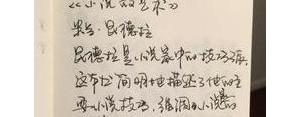 《小说的艺术》
米兰·昆德拉
昆德拉是小说家中的技巧派，
这本书简明地描述了他的主
要小说技巧，强调小说的